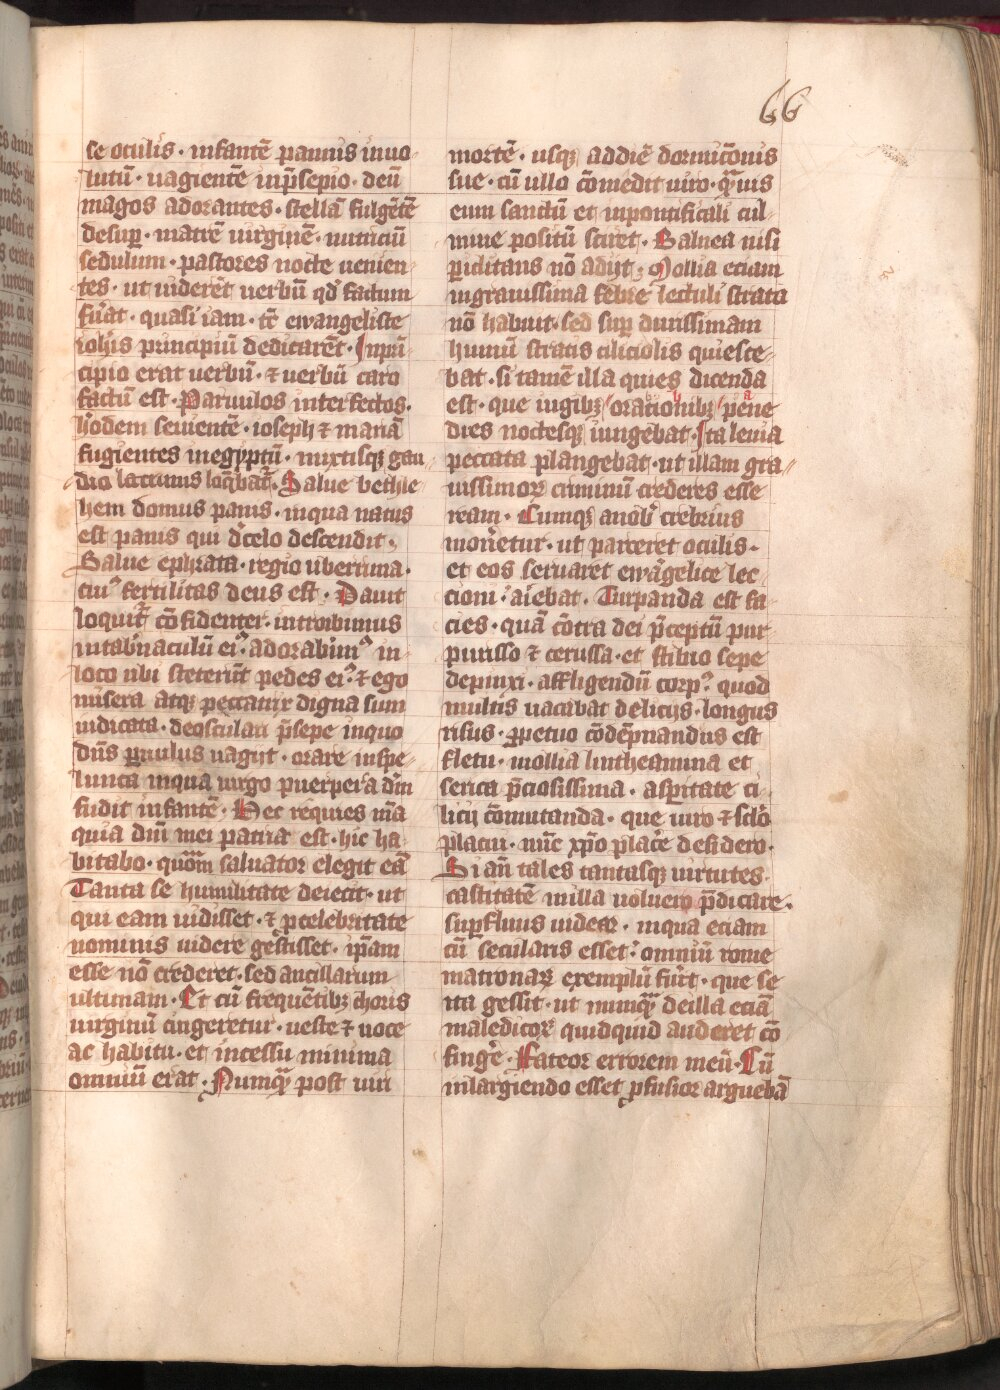 66
se oculis · infantē pannis inuo
lutū · uagientē inp̄sepio · deū
magos adorantes · stellā fulgētē
desup̲ · matrē uirginē · nutriciū
sedulum · pastores nocte uenien
tes · ut uiderēt uerbū qđ factum
fu̓at · quasi iam · tc̄ ewangeliste
ioh̄is principiū dedicarēt · Inpri̓
cipio erat uerbū · ⁊ uerbū caro
factū est · Paruulos interfectos ·
h̓odem seuientē · ioseph ⁊ mariā
fugientes inegyptū · mixtisqꝫ gau
dio lacrimis loq̄bat᷑ · Salue bethle
hem domus panis · inqua natus
est panis qui d̓celo descendit ·
Salue ephrata · regio uberrima ·
cui᷒ fertilitas deus est · Dauit
loquit᷑ cōfidenter · introibimus
intab̓naculū ei᷒ · adorabim᷒ in
loco ubi steterūt pedes ei᷒ · ⁊ ego
misera atqꝫ peccatrix digna sum
iudicata · deosculari p̄sepe inquo
dn̄s ꝑuulus uagijt · orare inspe
lunca inqua uirgo puerpera dn̄m
fudit infantē · Hec requies m̄a
quia dn̄i mei patria est · hic ha
bitabo · quōm saluator elegit eā
Tanta se humilitate deiecit · ut
qui eam uidisset · ⁊ p̲celebritate
nominis uidere gestisset · ip̄am
esse nō crederet · sed ancillarum
ultimam · Et cū frequētibꝫ choris
uirginū cingeretur · ueste ⁊ uoce
ac habitu · et incessu minima
omniū erat · Numqꝫ post uiri
mortē · usqꝫ addiē dormic̄onis
sue · cū ullo cōmedit uiro · q̄muis
eum sanctū et inpontificali cul
mine positū sciret · Balnea nisi
ꝑiclitans nō adijt · Mollia eciam
ingrauissima febre lectuli strata
nō habuit · sed sup̲ durissimam
humū stratis ciliciolis quiesce
bat · si tamē illa quies dicenda
est · que iugibꝫ orationibꝫ pene
dies noctesqꝫ iungebat · Ita leuia
peccata plangebat · ut illam gra
uissimoꝝ criminū crederes esse
ream · Cumqꝫ anob̓ crebrius
mon̓etur · ut parceret oculis ·
et eos seruaret ewāgelice lec
cioni · aiebat · Turpanda est fa
cies · quā cōtra dei p̄ceptū pur
purisso ⁊ cerussa · et stibio sepe
depinxi · affligendū corp᷒ · quod
multis uacabat delicijs · longus
risus · ꝑpetuo cōdēpnandus est
fletu · mollia lintheamina et
serica p̄ciosissima · asp̲itate ci
licij cōmutanda · que uiro ⁊ sc̄lo
placui · nūc xp̄o plac̓e desidero ·
Si an̄ tales tantasqꝫ uirtutes
castitatē in illa voluero p̄dicare ·
sup̲fluus uidere · inqua eciam
cū secularis esset · omniū rome
matronaꝝ exemplū fu̓it · que se
ita gessit · ut numqꝫ deilla eciā
maledicoꝝ quidquid auderet cō
fing̓e · Fateor errorem meū · Cū
inlargiendo esset p̲fusior arguebā